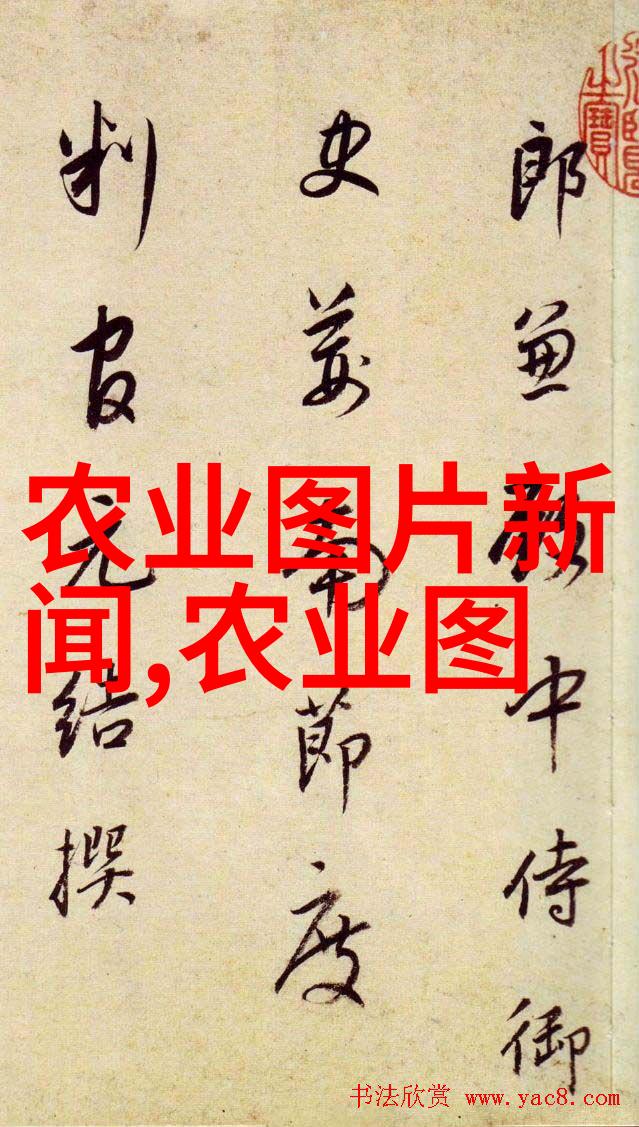 郎兼殿中侍御
史荊南節度
判官元結撰
农业图片新
闻,农业图
书法欣赏 www.yac8.com